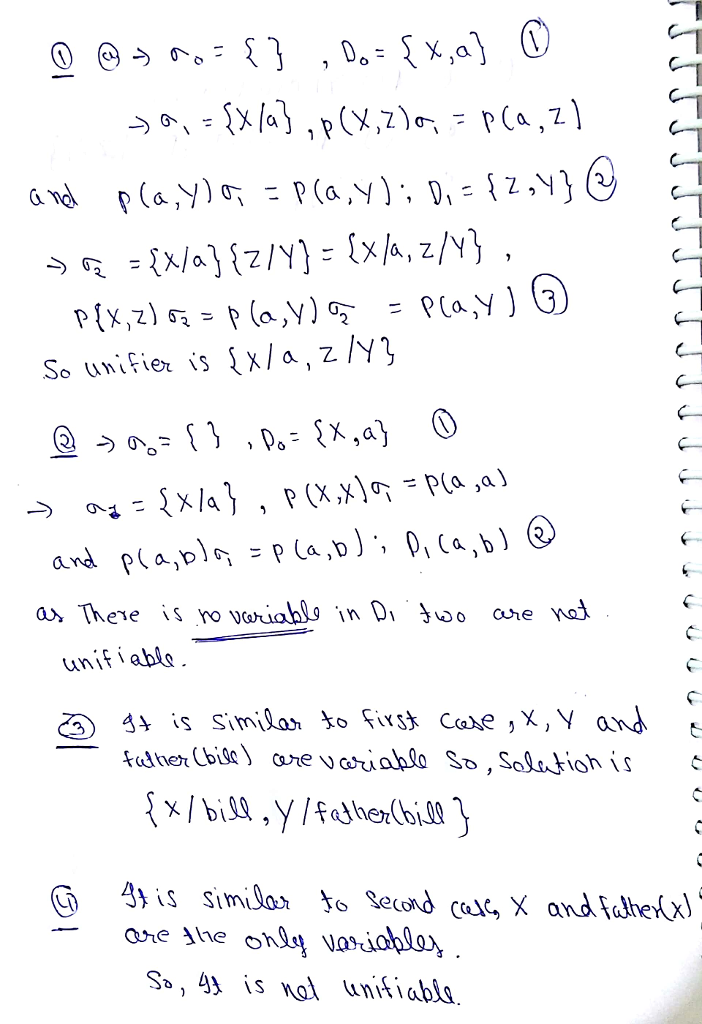 ① ⓐ → σ₀ = { } , D₀ = { X,a} ①
→ σ₁ = {X/a} , p(X,Z)σ₁ = p(a,Z)
and p(a,Y)σ₁ = P(a,Y); D₁ = {Z,Y} ②
→ σ₂ = {X/a}{Z/Y} = {X/a, Z/Y} ,
P{X,Z) σ₂ = p(a,Y) σ₂ = P(a,Y) ③
So unifier is {X/a, Z/Y}
② → σ₀ = { } , D₀ = {X,a} ①
→ σ₁ = {X/a} , P(X,X)σ₁ = P(a,a)
and p(a,b)σ₁ = p(a,b); D₁(a,b) ②
as There is no variable in D₁ two are not
unifiable.
③ It is similar to first case, X, Y and
father(bill) are variable so, Solution is
{X/bill, Y/father(bill}
④ It is similar to Second case, X and father(x)
are the only variables.
So, It is not unifiable.